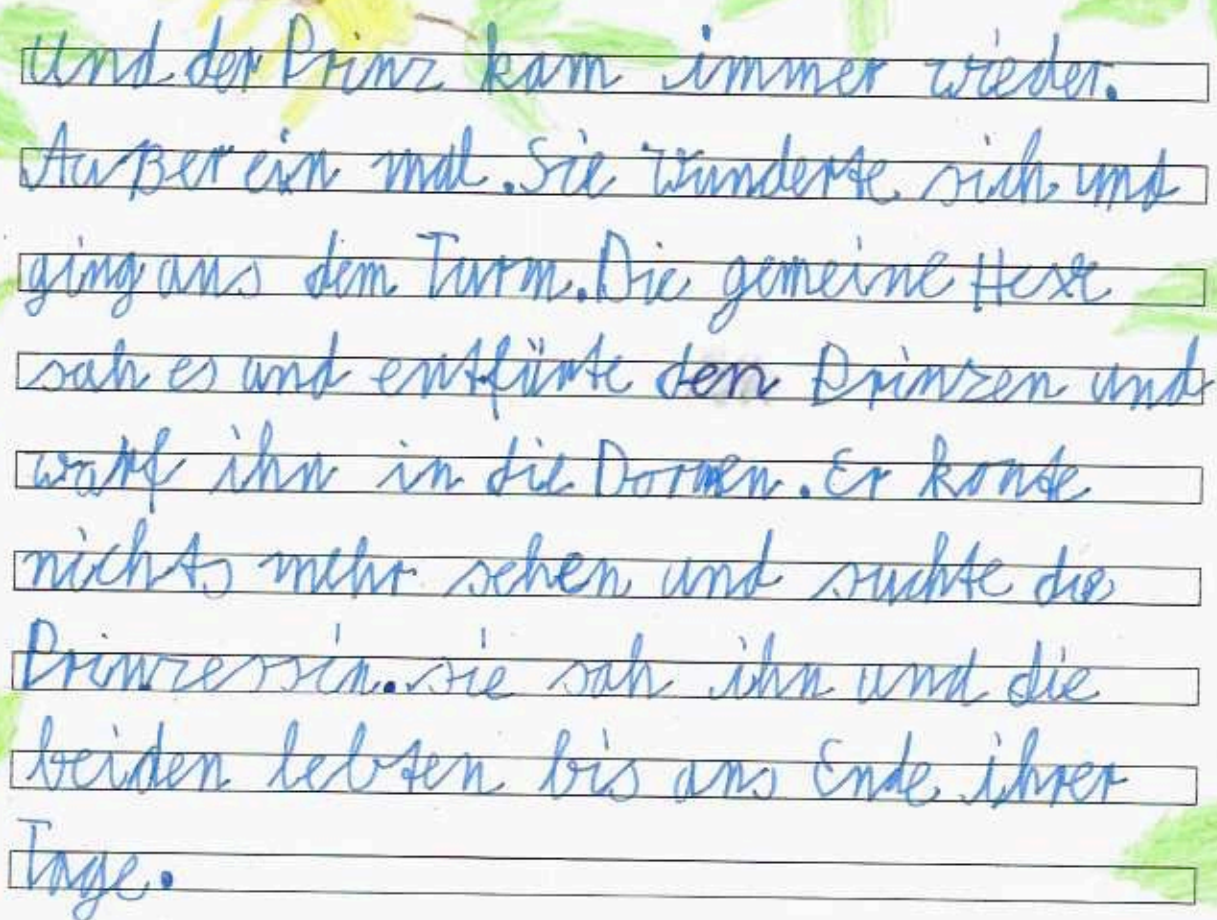 Und der Prinz kam immer wieder.
Außer ein mal. Sie wunderte sich und
ging aus dem Turm. Die gemeine Hexe
sah es und entfürte den Prinzen und
warf ihn in die Dornen. Er konte
nichts mehr sehen und suchte die
Prinzessin. sie sah ihn und die
beiden lebten bis ans Ende ihrer
Tage.